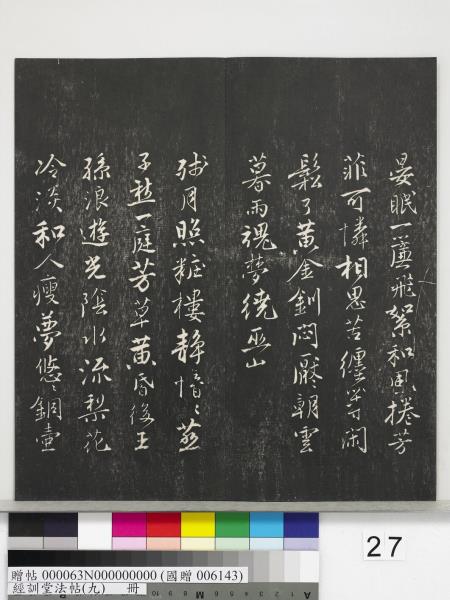 晏眠一簾飛絮和風捲芳
菲可憐相思苦纏等閑
鬆了黃金釧悶厭朝雲
暮雨魂夢繞巫山
殘月照粧樓靜愔〻燕
子愁一庭芳草黃昏後王
孫浪遊光陰水流梨花
冷淡和人瘦夢悠〻銅壺
27
贈帖 000063N000000000 (國贈 006143)
經訓堂法帖(九) 冊